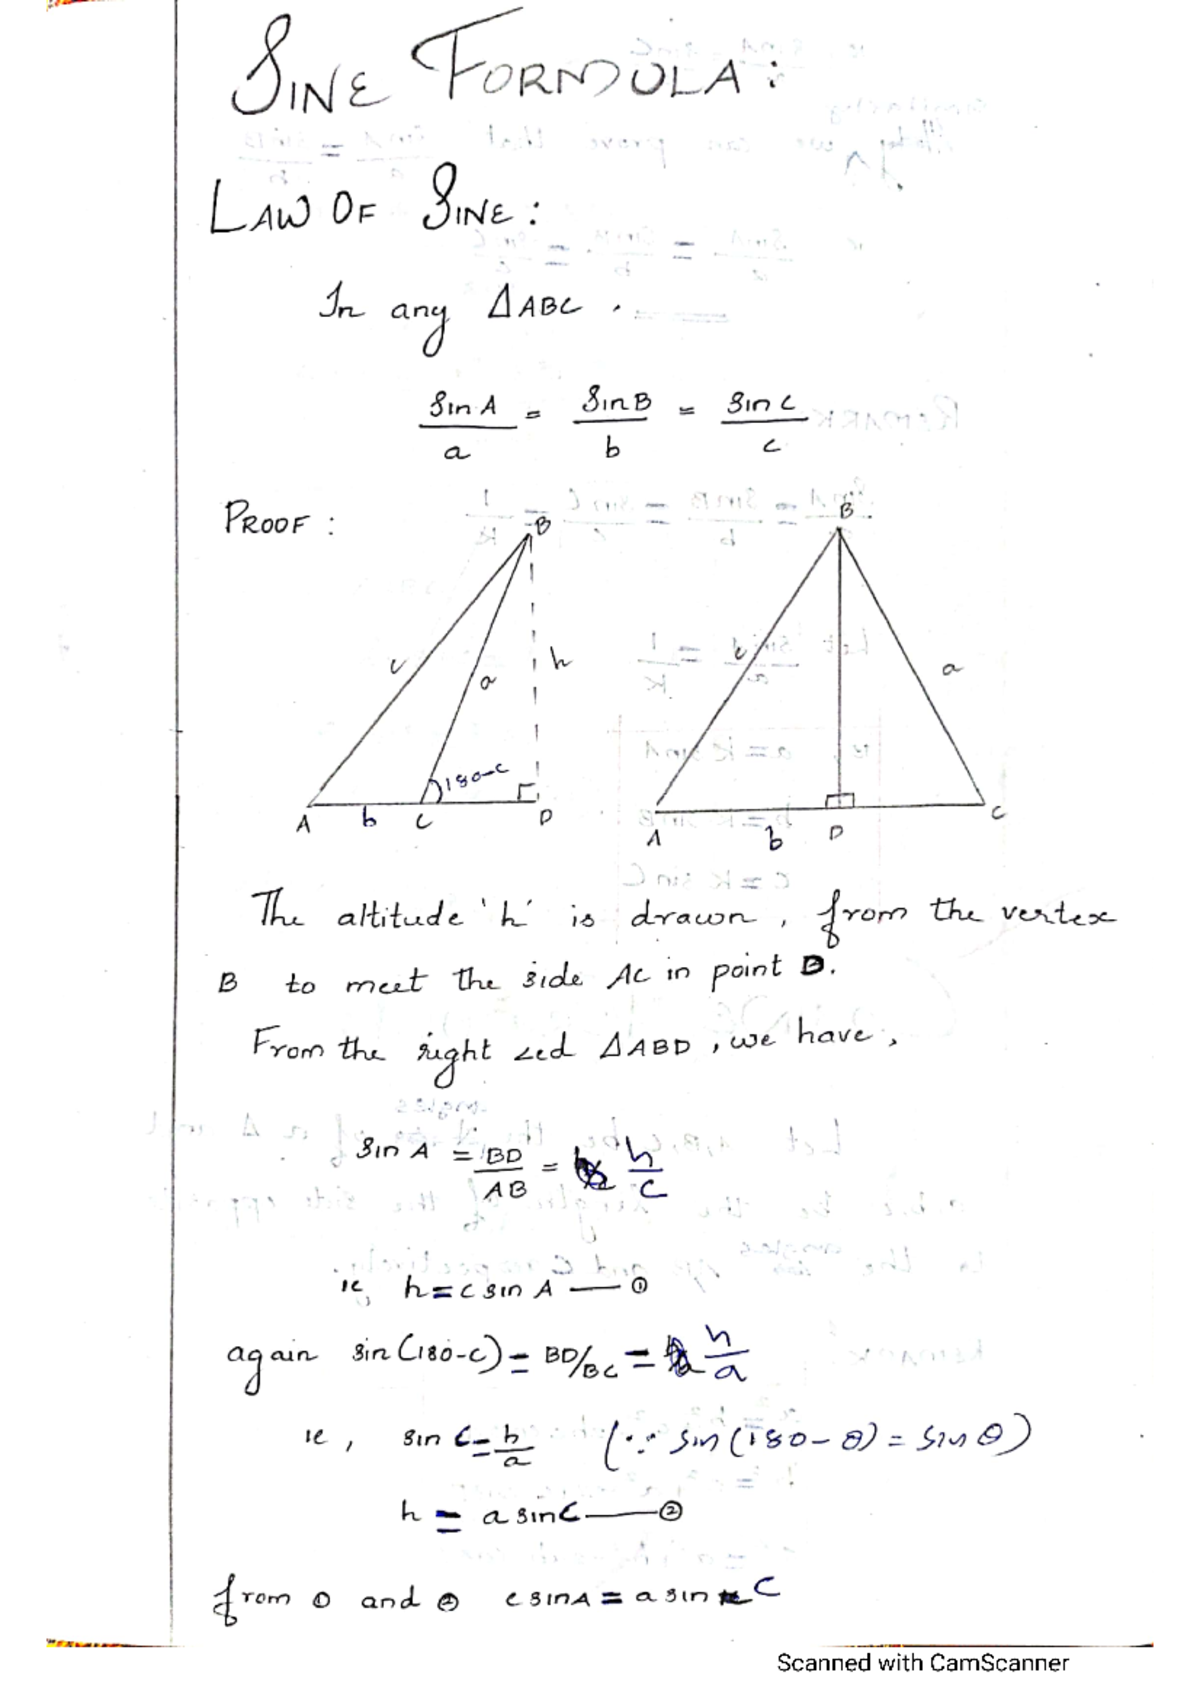 SINE FORMULA:
LAW OF SINE:
In any ΔABC.
sin A/a = sin B/b = sin C/c
PROOF:
B B
c a h c a
180-c
A b C D A b D C
The altitude 'h' is drawn, from the vertex
B to meet the side AC in point D.
From the right ∠ed ΔABD, we have,
sin A = BD/AB = h/c
ie, h = c sin A — ①
again sin(180-c) = BD/BC = h/a
ie, sin C = h/a (∵ sin(180-θ) = sin θ)
h = a sin C — ②
from ① and ② c sin A = a sin C
Scanned with CamScanner